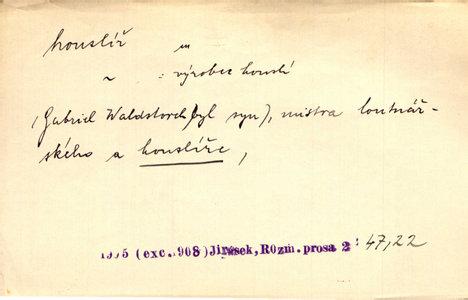 houslíř m
~ : výrobce houslí
(Gabriel Waldstorch byl syn), mistra loutnář-
ského a houslíře,
1905 (exc. 908) Jirásek, Rozm. prosa 2 : 47,22